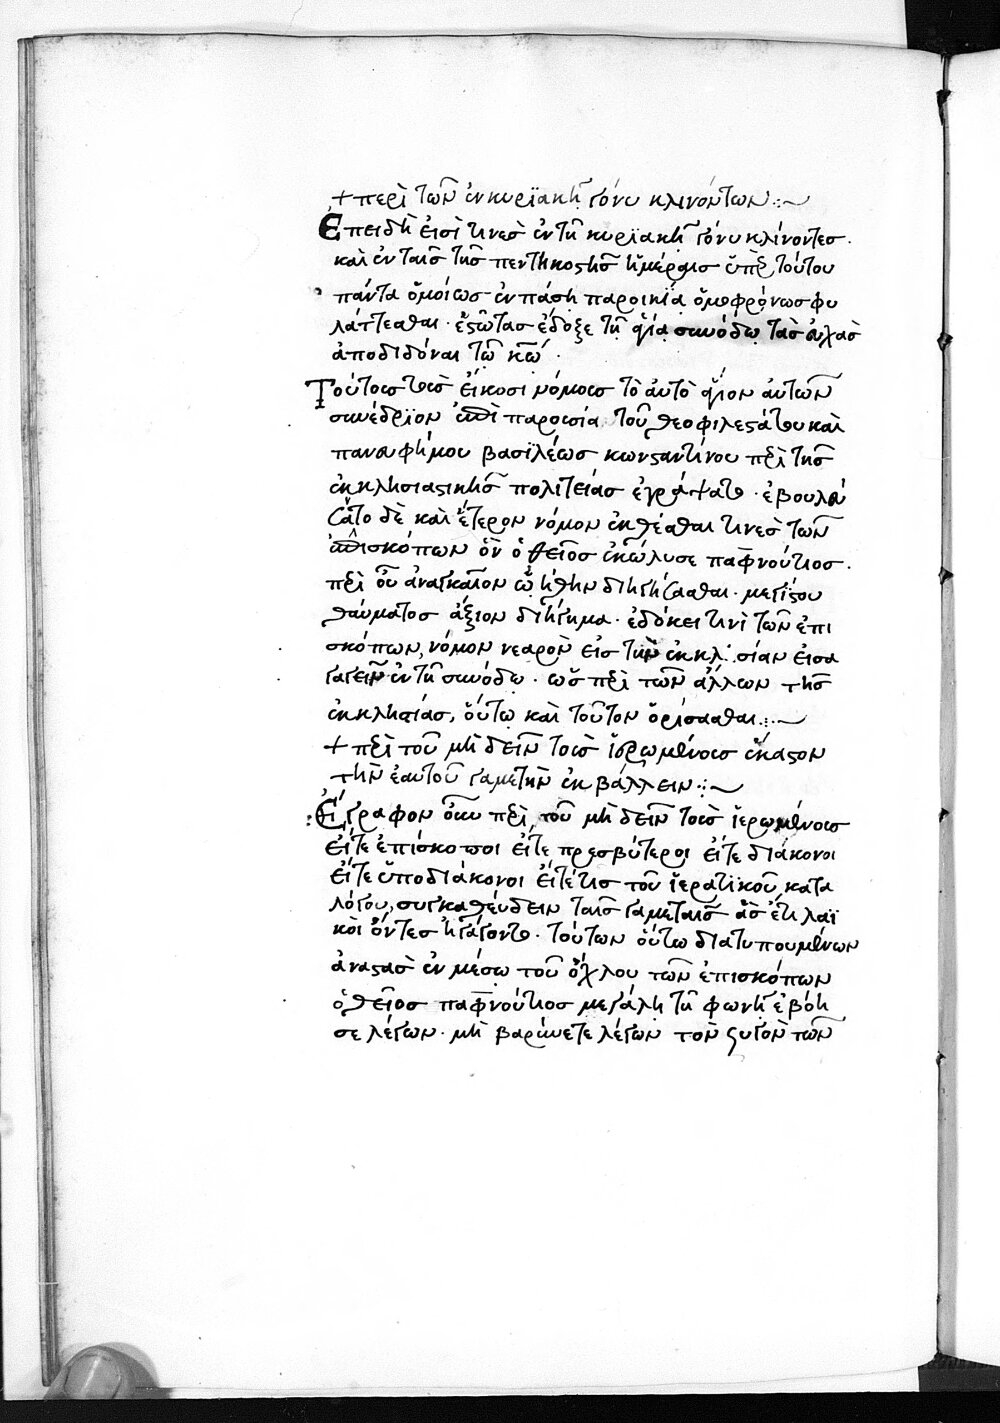 + περὶ τῶν ἐν κυρϊακῆ γόνυ κλινόντων :~
Ἐπειδή εἰσί τινεσ ἐν τῆ κυρϊακῆ γόνυ κλίνοντεσ ·
καὶ ἐν ταῖσ τῆσ πεντηκοστῆσ ἡμέραισ ὑπὲρ τούτου
πάντα ὁμοίωσ ἐν πάση παροικία ὁμοφρόνωσ φυ
λάττεσθαι · ἑστῶτασ ἔδοξε τῆ ἁγία συνόδω τὰσ εὐχὰσ
ἀποδιδόναι τῶ κῶ ·
Τούτοισ τοῖσ εἴκοσι νόμοισ τὸ αὐτὸ ἅγιον αὐτῶν
συνέδρϊον ἐπὶ παρουσία τοῦ θεοφιλεστάτου καὶ
πανευφήμου βασϊλέωσ κωνσταντίνου περὶ τῆσ
ἐκκλησιαστικῆσ πολιτείασ ἐγράψατο · ἐβουλεύ
σατο δὲ καὶ ἕτερον νόμον ἐκθέσθαι τινὲσ τῶν
ἐπισκόπων ὃν ὁ θεῖοσ ἐκώλυσε παφνούτιοσ ·
περὶ οὗ ἀναγκαῖον ὠήθην διηγήσασθαι · μεγίστου
θαύματοσ ἄξιον διήγημα · ἐδόκει τινὶ τῶν ἐπι
σκόπων, νόμον νεαρὸν εἰσ τὴν ἐκκλησίαν εἰσα
γαγεῖν ἐν τῆ συνόδω · ὡσ περὶ τῶν ἄλλων τῆσ
ἐκκλησίασ, οὕτω καὶ τοῦτον ὁρίσασθαι :~
+ περὶ τοῦ μὴ δεῖν τοῖσ ἱερωμένοισ ἕκαστον
τὴν ἑαυτοῦ γαμετὴν ἐκβάλλειν :~
Ἔγραφον οὖν περὶ τοῦ μὴ δεῖν τοῖσ ἱερωμένοισ
εἴτε ἐπίσκοποι εἴτε πρεσβύτεροι εἴτε διάκονοι
εἴτε ὑποδιάκονοι εἴτέ τισ τοῦ ἱερατϊκοῦ κατα
λόγου, συγκαθεύδειν ταῖσ γαμεταῖσ ἃσ ἔτι λαϊ
κοὶ ὄντεσ ἠγάγοντο · τούτων οὕτω διατυπουμένων
ἀναστὰσ ἐν μέσω τοῦ ὄχλου τῶν ἐπισκόπων
ὁ θεῖοσ παφνούτιοσ μεγάλη τῆ φωνῆ ἐβόη
σε λέγων · μὴ βαρύνετε λέγων τὸν ζυγὸν τῶν